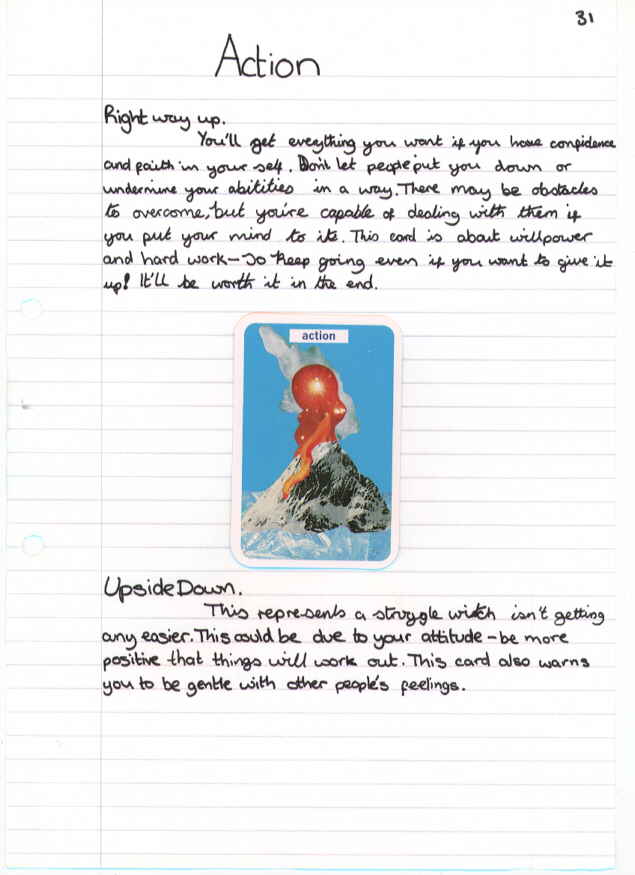 31
Action
Right way up.
You'll get eveything you want if you have confidence
and faith in your self. Don't let people put you down or
undermine your abitities in a way. There may be obstacles
to overcome, but you're capable of dealing with them if
you put your mind to its. This card is about willpower
and hard work - so keep going even if you want to give it
up! It'll be worth it in the end.
action
Upside Down.
This represents a struggle witch isn't getting
any easier. This could be due to your attitude - be more
positive that things will work out. This card also warns
you to be gentle with other people's feelings.